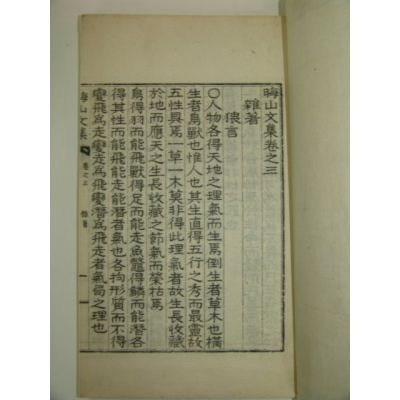 晦山文集卷之三
雜著
猥言
○人物各得天地之理氣而生焉倒生者草木也橫
生者鳥獸也惟人也其生直得五行之秀而最靈故
五性具焉一草一木莫非得此理氣者故生長收藏
於地而應天之生長收藏之節氣而榮枯焉
鳥得羽而能飛獸得足而能走魚鼈得鱗而能潛各
得其性而能飛能走能潛者氣也各拘形質而不得
變飛爲走變走爲飛變潛爲飛走者氣局之理也
晦山文集
卷之三 雜著
一